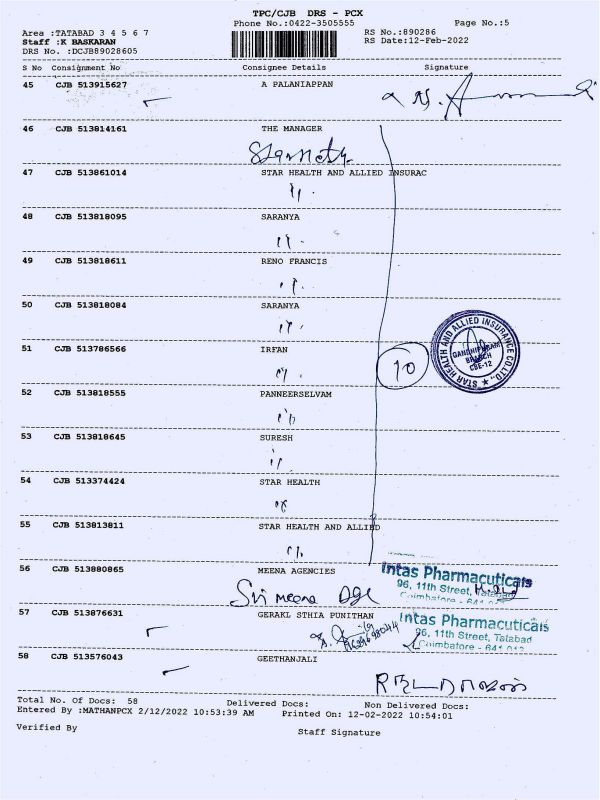 TPC/CJB DRS - PCX
Phone No.:0422-3505555
Page No.:5
Area :TATABAD 3 4 5 6 7
RS No.:890286
Staff :K BASKARAN
RS Date:12-Feb-2022
DRS No. :DCJB89028605
S No Consignment No Consignee Details Signature
45 CJB 513915627 A PALANIAPPAN
46 CJB 513814161 THE MANAGER
47 CJB 513861014 STAR HEALTH AND ALLIED INSURAC
48 CJB 513818095 SARANYA
49 CJB 513818611 RENO FRANCIS
50 CJB 513818084 SARANYA
51 CJB 513786566 IRFAN
10
STAR HEALTH AND ALLIED INSURANCE CO.LTD.,
GANDHIPURAM
BRANCH
CBE-12
52 CJB 513818555 PANNEERSELVAM
53 CJB 513818645 SURESH
54 CJB 513374424 STAR HEALTH
55 CJB 513813811 STAR HEALTH AND ALLIED
56 CJB 513880865 MEENA AGENCIES
Intas Pharmaceuticals
96, 11th Street, Tatabad
Coimbatore - 641 012
Sri meena
57 CJB 513876631 GERAKL STHIA PUNITHAN
Intas Pharmaceuticals
96, 11th Street, Tatabad
Coimbatore - 641 012
58 CJB 513576043 GEETHANJALI
Total No. Of Docs: 58 Delivered Docs: Non Delivered Docs:
Entered By :MATHANPCX 2/12/2022 10:53:39 AM Printed On: 12-02-2022 10:54:01
Verified By Staff Signature